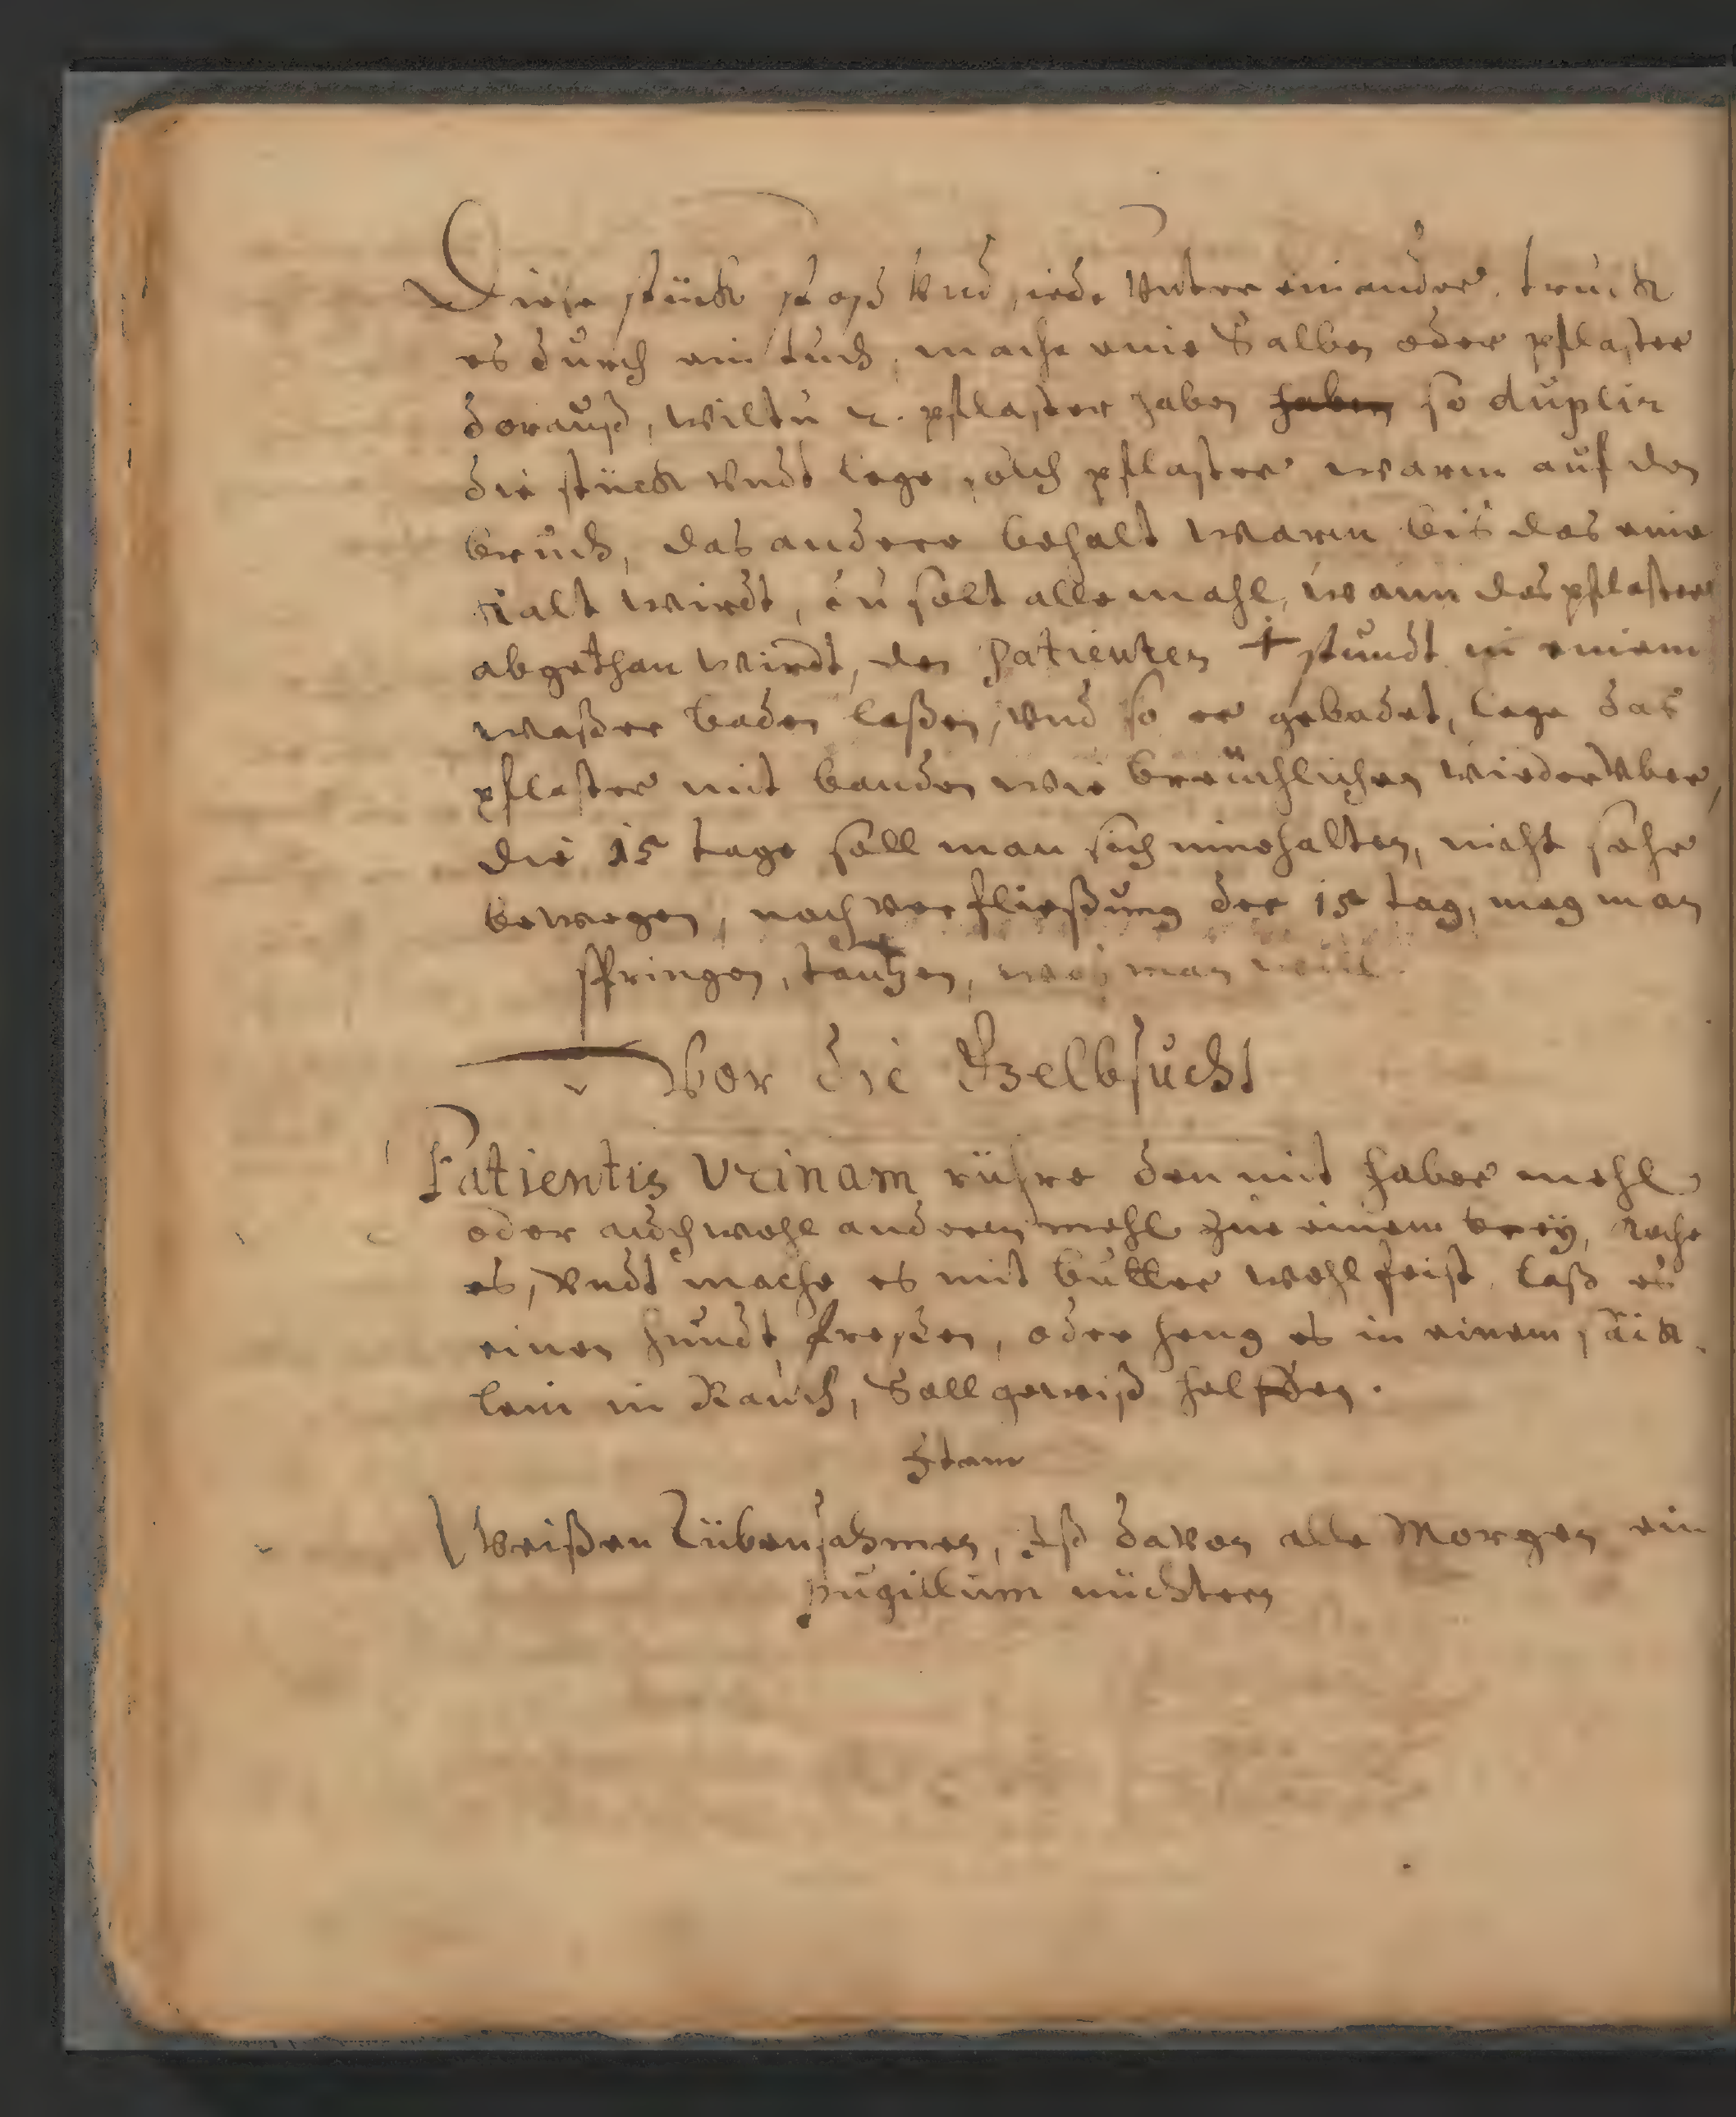 Diese stück stoß vnd siede vnter einander, truck
es durch ein tuch, mache eine Salben oder pflaster
dorauß, wiltu 2. pflaster haben haben so duplir
die stück vndt lege solch pflaster warm auf den
bruch, das andere behalt warm bis das eine
kalt wirdt, du solt alle mahl, wann das pflaster
abgethan wirdt, den Patienten stundt in einem
waßer baden laßen, vnd so er gebadet, lege das
pflaster mit banden wie breuchlichen wieder vber,
die 15 tage soll man sich innehalten, nicht sehr
bewegen, nach verfließung der 15 tag, mag man
springen, tantzen, was man will.
Vor die Gelbsucht
Patientis Vrinam rühre den mit haber mehl
oder auch wohl anderen mehl zue einem brey, koche
es, vndt mache es mit butter wohl feist, laß es
einen hundt freßen, oder heng es in einem säck
lein in Rauch, Soll gewiß helffen.
Item
Weißen Rübensahmen, Iß davon alle Morgen ein
pugillum nüchtern